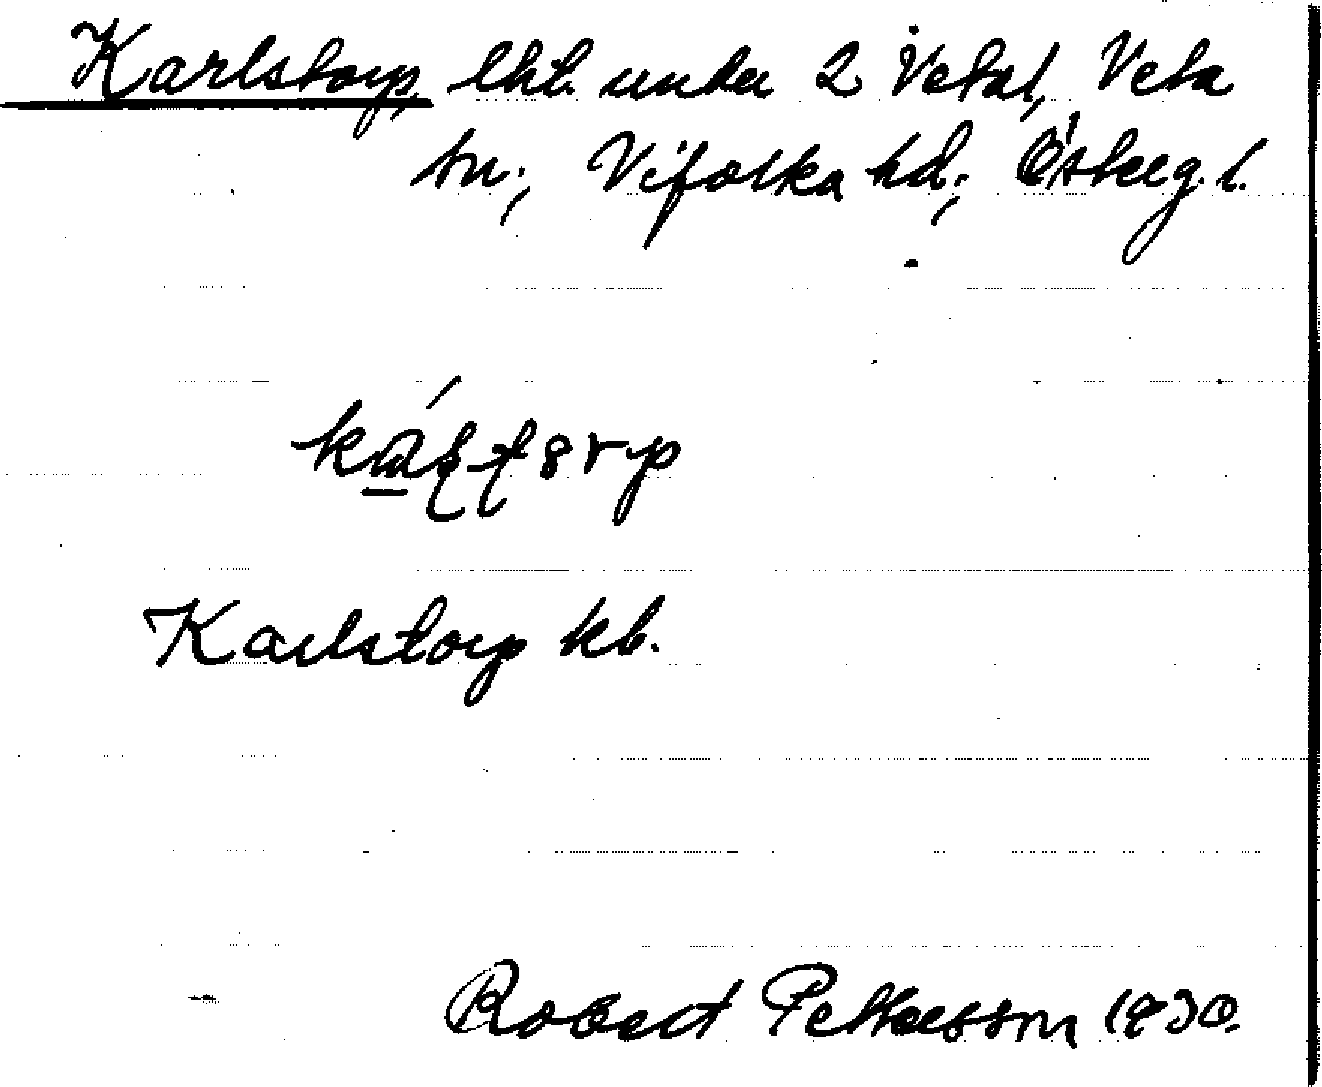 Karlstorp, lht. under 2 Vetal, Veta
sn., Vifolka hd., Österg. l.
Karlstorp kb.
Robert Pettersson 1930.